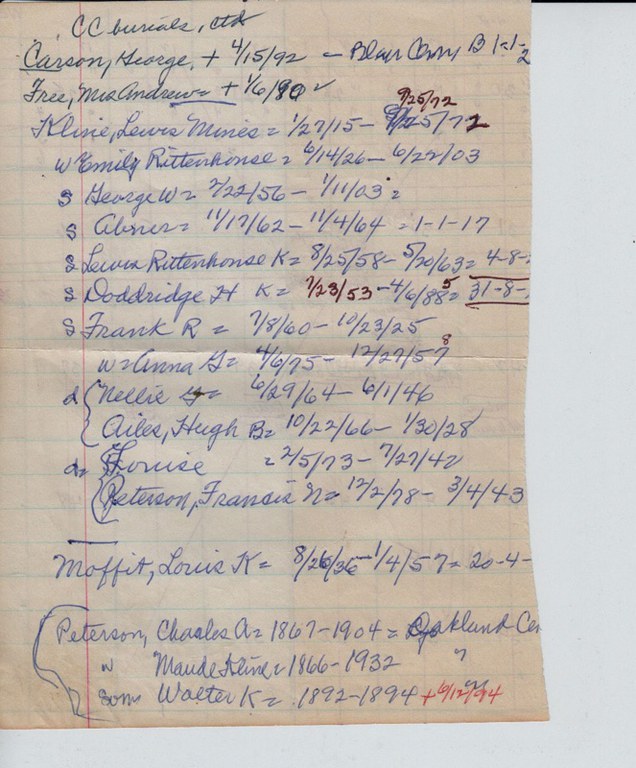 CC burials, ctd
Carson, George, + 4/15/92 – Blair Cem, B 1-1-2
Free, Mrs Andrew = + 1/6/90 ✓
9/25/72
Kline, Lewis Mines = 1/27/15 – 9/25/72
w Emily Rittenhouse = 6/14/26 – 6/22/03
s George W = 2/22/56 – 1/11/03 =
s Abner = 11/17/62 – 11/4/64 = 1-1-17
s Lewis Rittenhouse K = 8/25/58 – 5/20/63 = 4-8-
s Doddridge H K = 7/23/53 – 4/6/885 = 31-8-
s Frank R = 7/8/60 – 10/23/25
w = Anna G = 4/6/75 – 12/27/578
d { Nellie = 6/29/64 – 6/1/46
Ailes, Hugh B = 10/22/66 – 1/30/28
d = { Louise = 2/5/73 – 7/27/42
Peterson, Francis N = 12/2/78 – 3/4/43
Moffit, Louis K = 8/26/36 – 1/4/57 = 20-4-
Peterson, Charles A = 1867 – 1904 = Oakland Cem
w Maude Kline = 1866 – 1932 "
son Walter K = 1892 – 1894 + 6/12/94 "